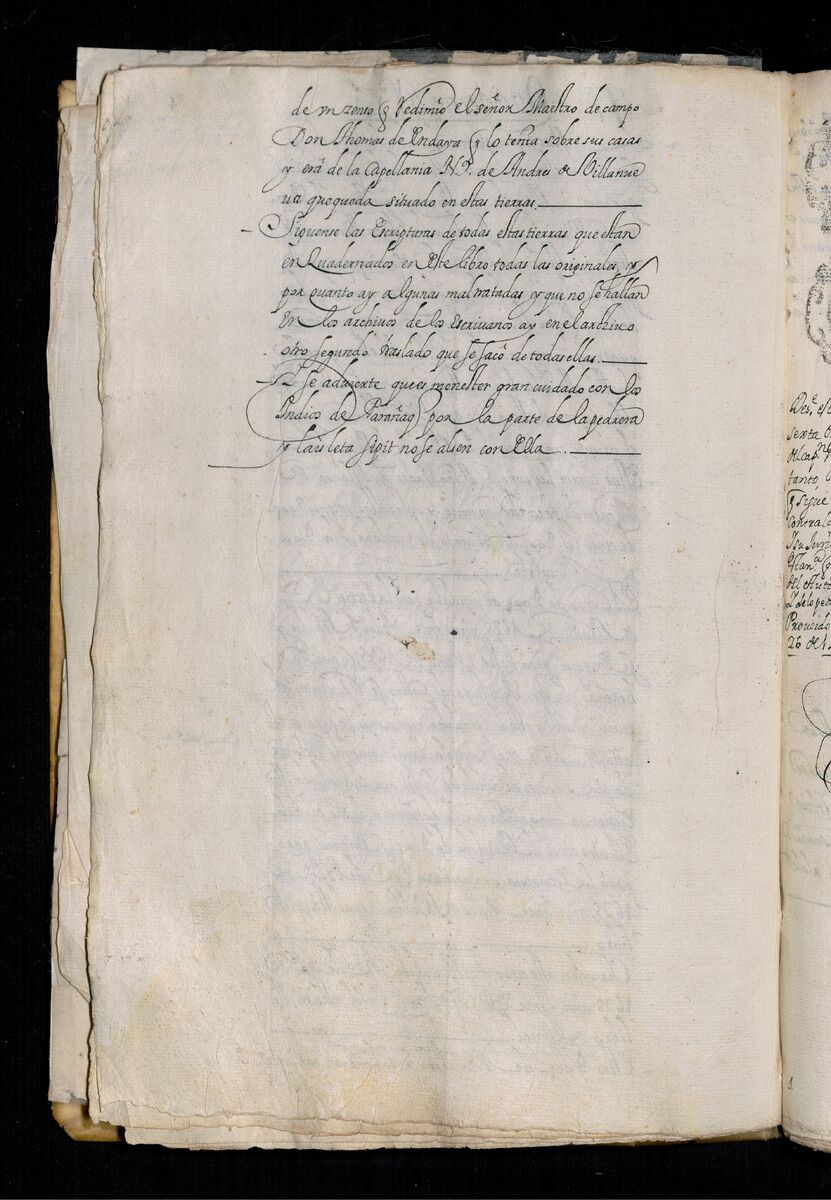 de vn zenso q̃ Redimio el señor Maestro de campo
Don Thomas de Endaya q̃ lo tenia sobre sus casas
y erã de la Capellania N.º de Andres de Villanue
ua que queda situado en estas tierras.
Siguense las Escripturas de todas estas tierras que estan
en Quadernados en Este libro todas las originales, y
por quanto ay algunas maltratadas y que no se hallan
En los archivos de los Escrivanos ay en el archivo
otro segundo traslado que se sacò de todas ellas.
Y se adbierte que es menester gran cuidado con los
Indios de Parañaq̃ por la parte de la pedrera
y la isleta sipit no se alsen con Ella.
Des.e
senta
tanto,
q̃ sigue
Contra la
del Auto
26 de
1